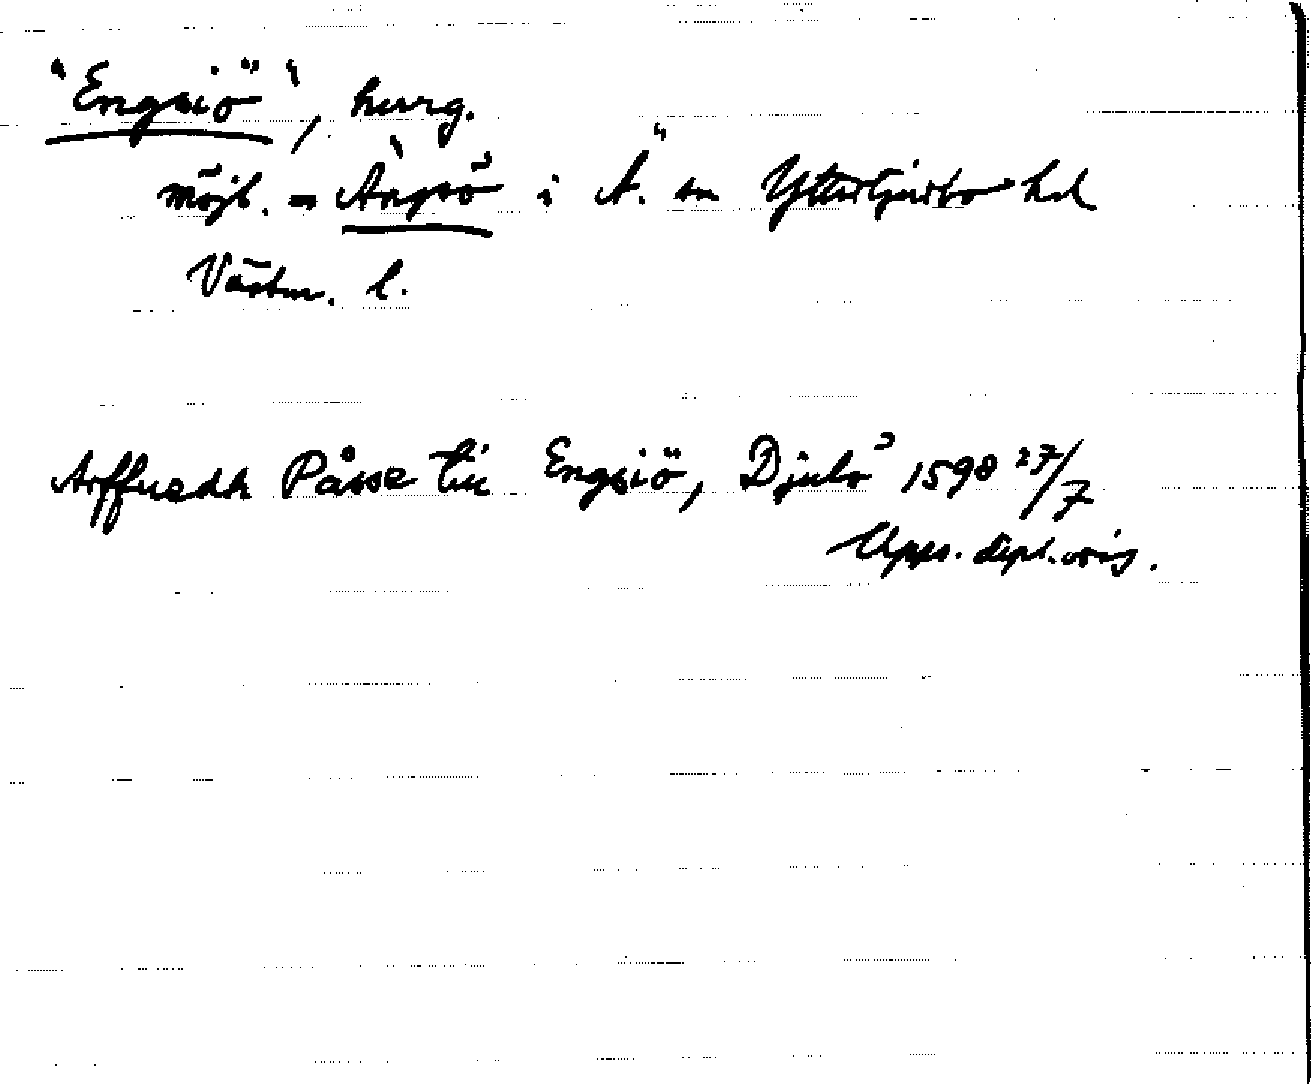 "Engsiö", herrg.
möjl. = Ängsö i Ä. sn Yttertjurbo hd
Västm. l.
Arffuedh Påsse till Engsiö, Djulö 1598 27/7
Upps. dipl. orig.